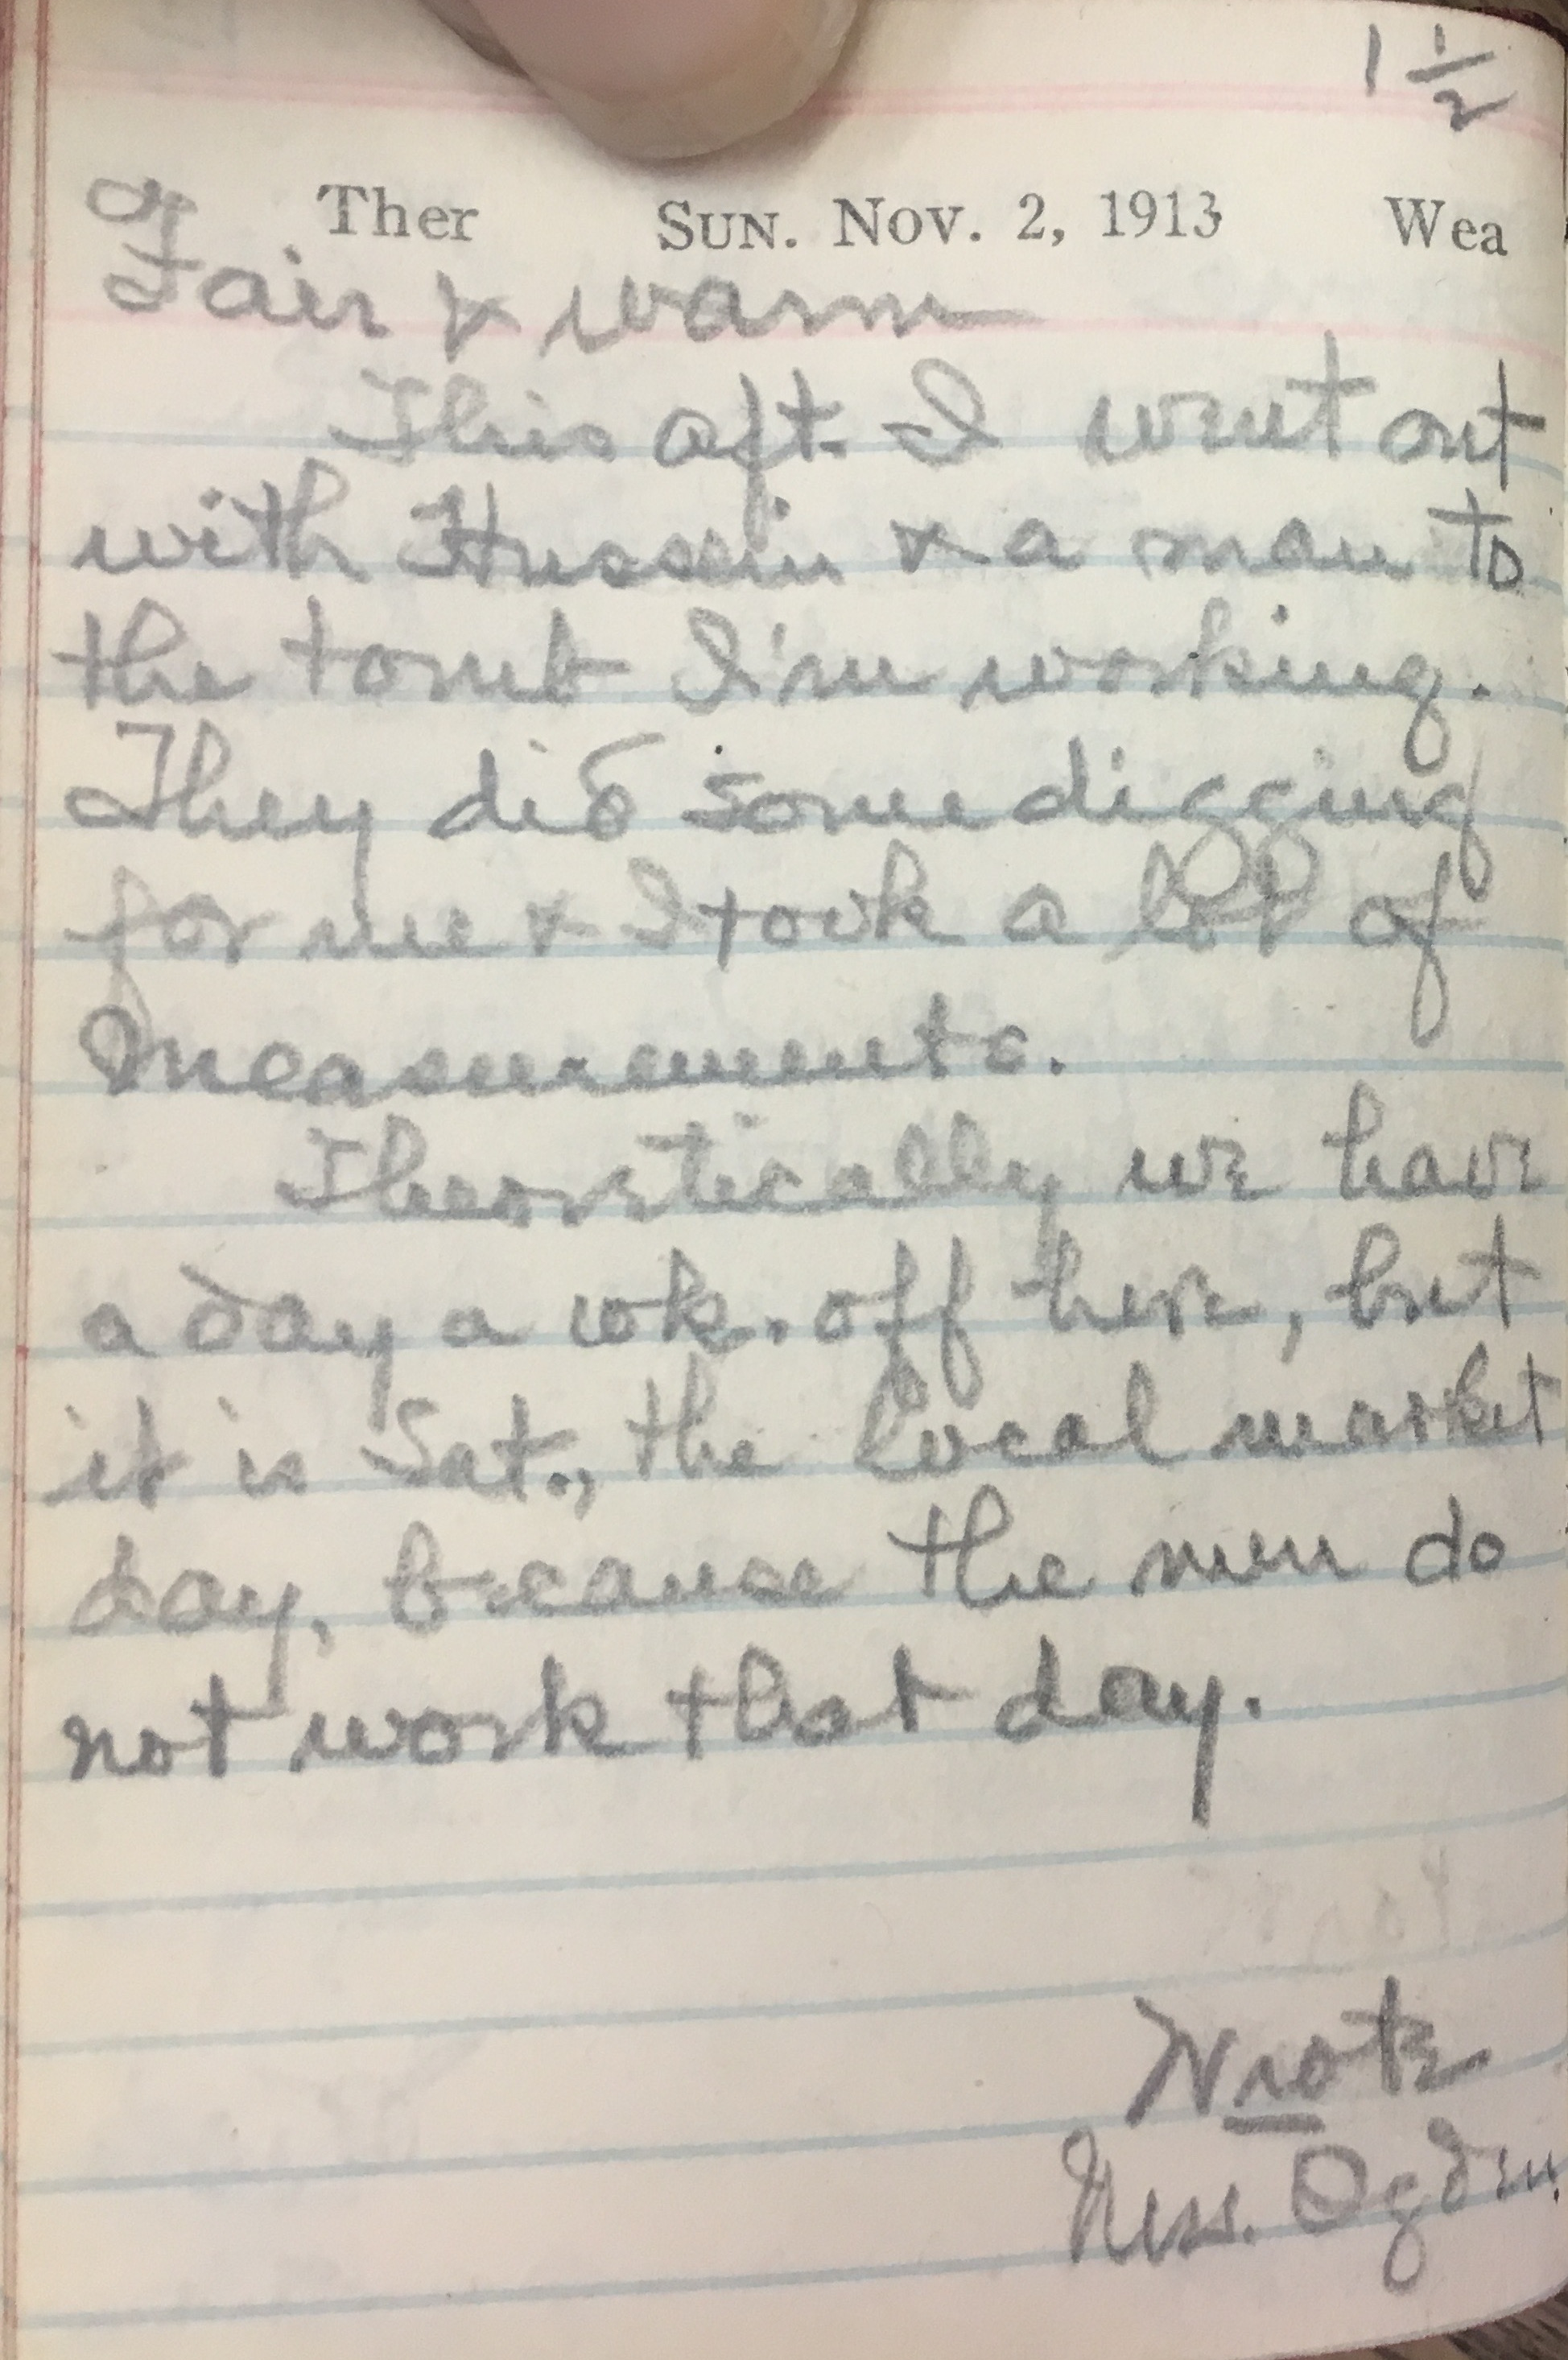 1 1/2
Ther SUN. NOV. 2, 1913 Wea
Fair & warm
This aft. I went out
with Hussein & a man to
the tomb I'm working.
They did some digging
for me & I took a lot of
measurements.
Theoretically we have
a day a wk. off here, but
it is Sat., the local market
day, because the men do
not work that day.
Wrote
Miss. Ogden.